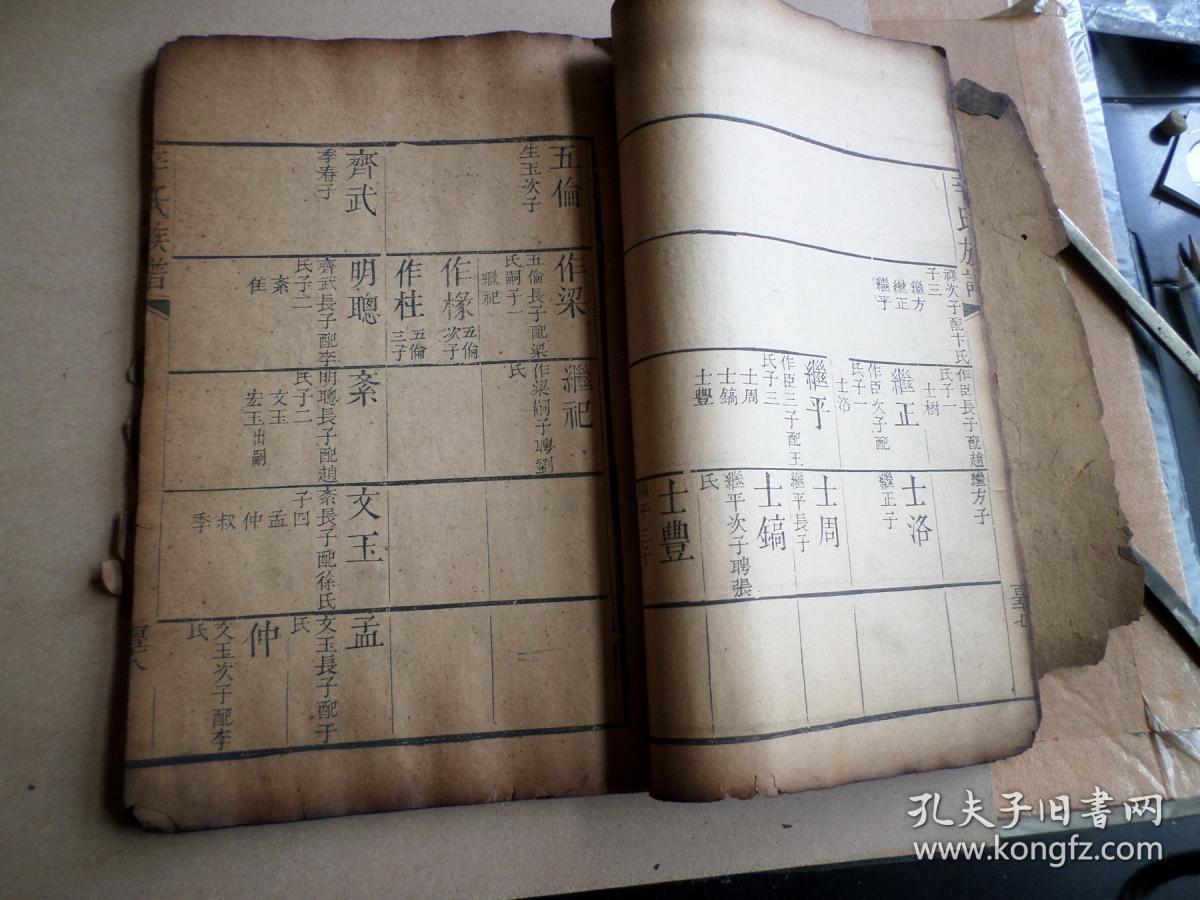 氏族譜
次子配卞氏
子三
繼方
繼正
繼平
作臣長子配趙
氏子一
士樹
繼正
作臣次子配
氏子一
士洛
繼平
作臣三子配王
氏子三
士周
士鎬
士豐
繼方子
士洛
繼正子
士周
繼平長子
士鎬
繼平次子聘張
氏
士豐
三子
五倫
生玉次子
齊武
季春子
作梁
五倫長子配梁
氏嗣子一
繼祀
作椽
五倫
次子
作柱
五倫
三子
明聰
齊武長子配李
氏子二
紊
隹
繼祀
作梁嗣子聘劉
氏
紊
明聰長子配趙
氏子二
文玉
宏玉出嗣
文玉
紊長子配徐氏
子四
孟
仲
叔
季
孟
文玉長子配于
氏
仲
文玉次子配李
氏
氏族譜
孔夫子旧书网
www.kongfz.com